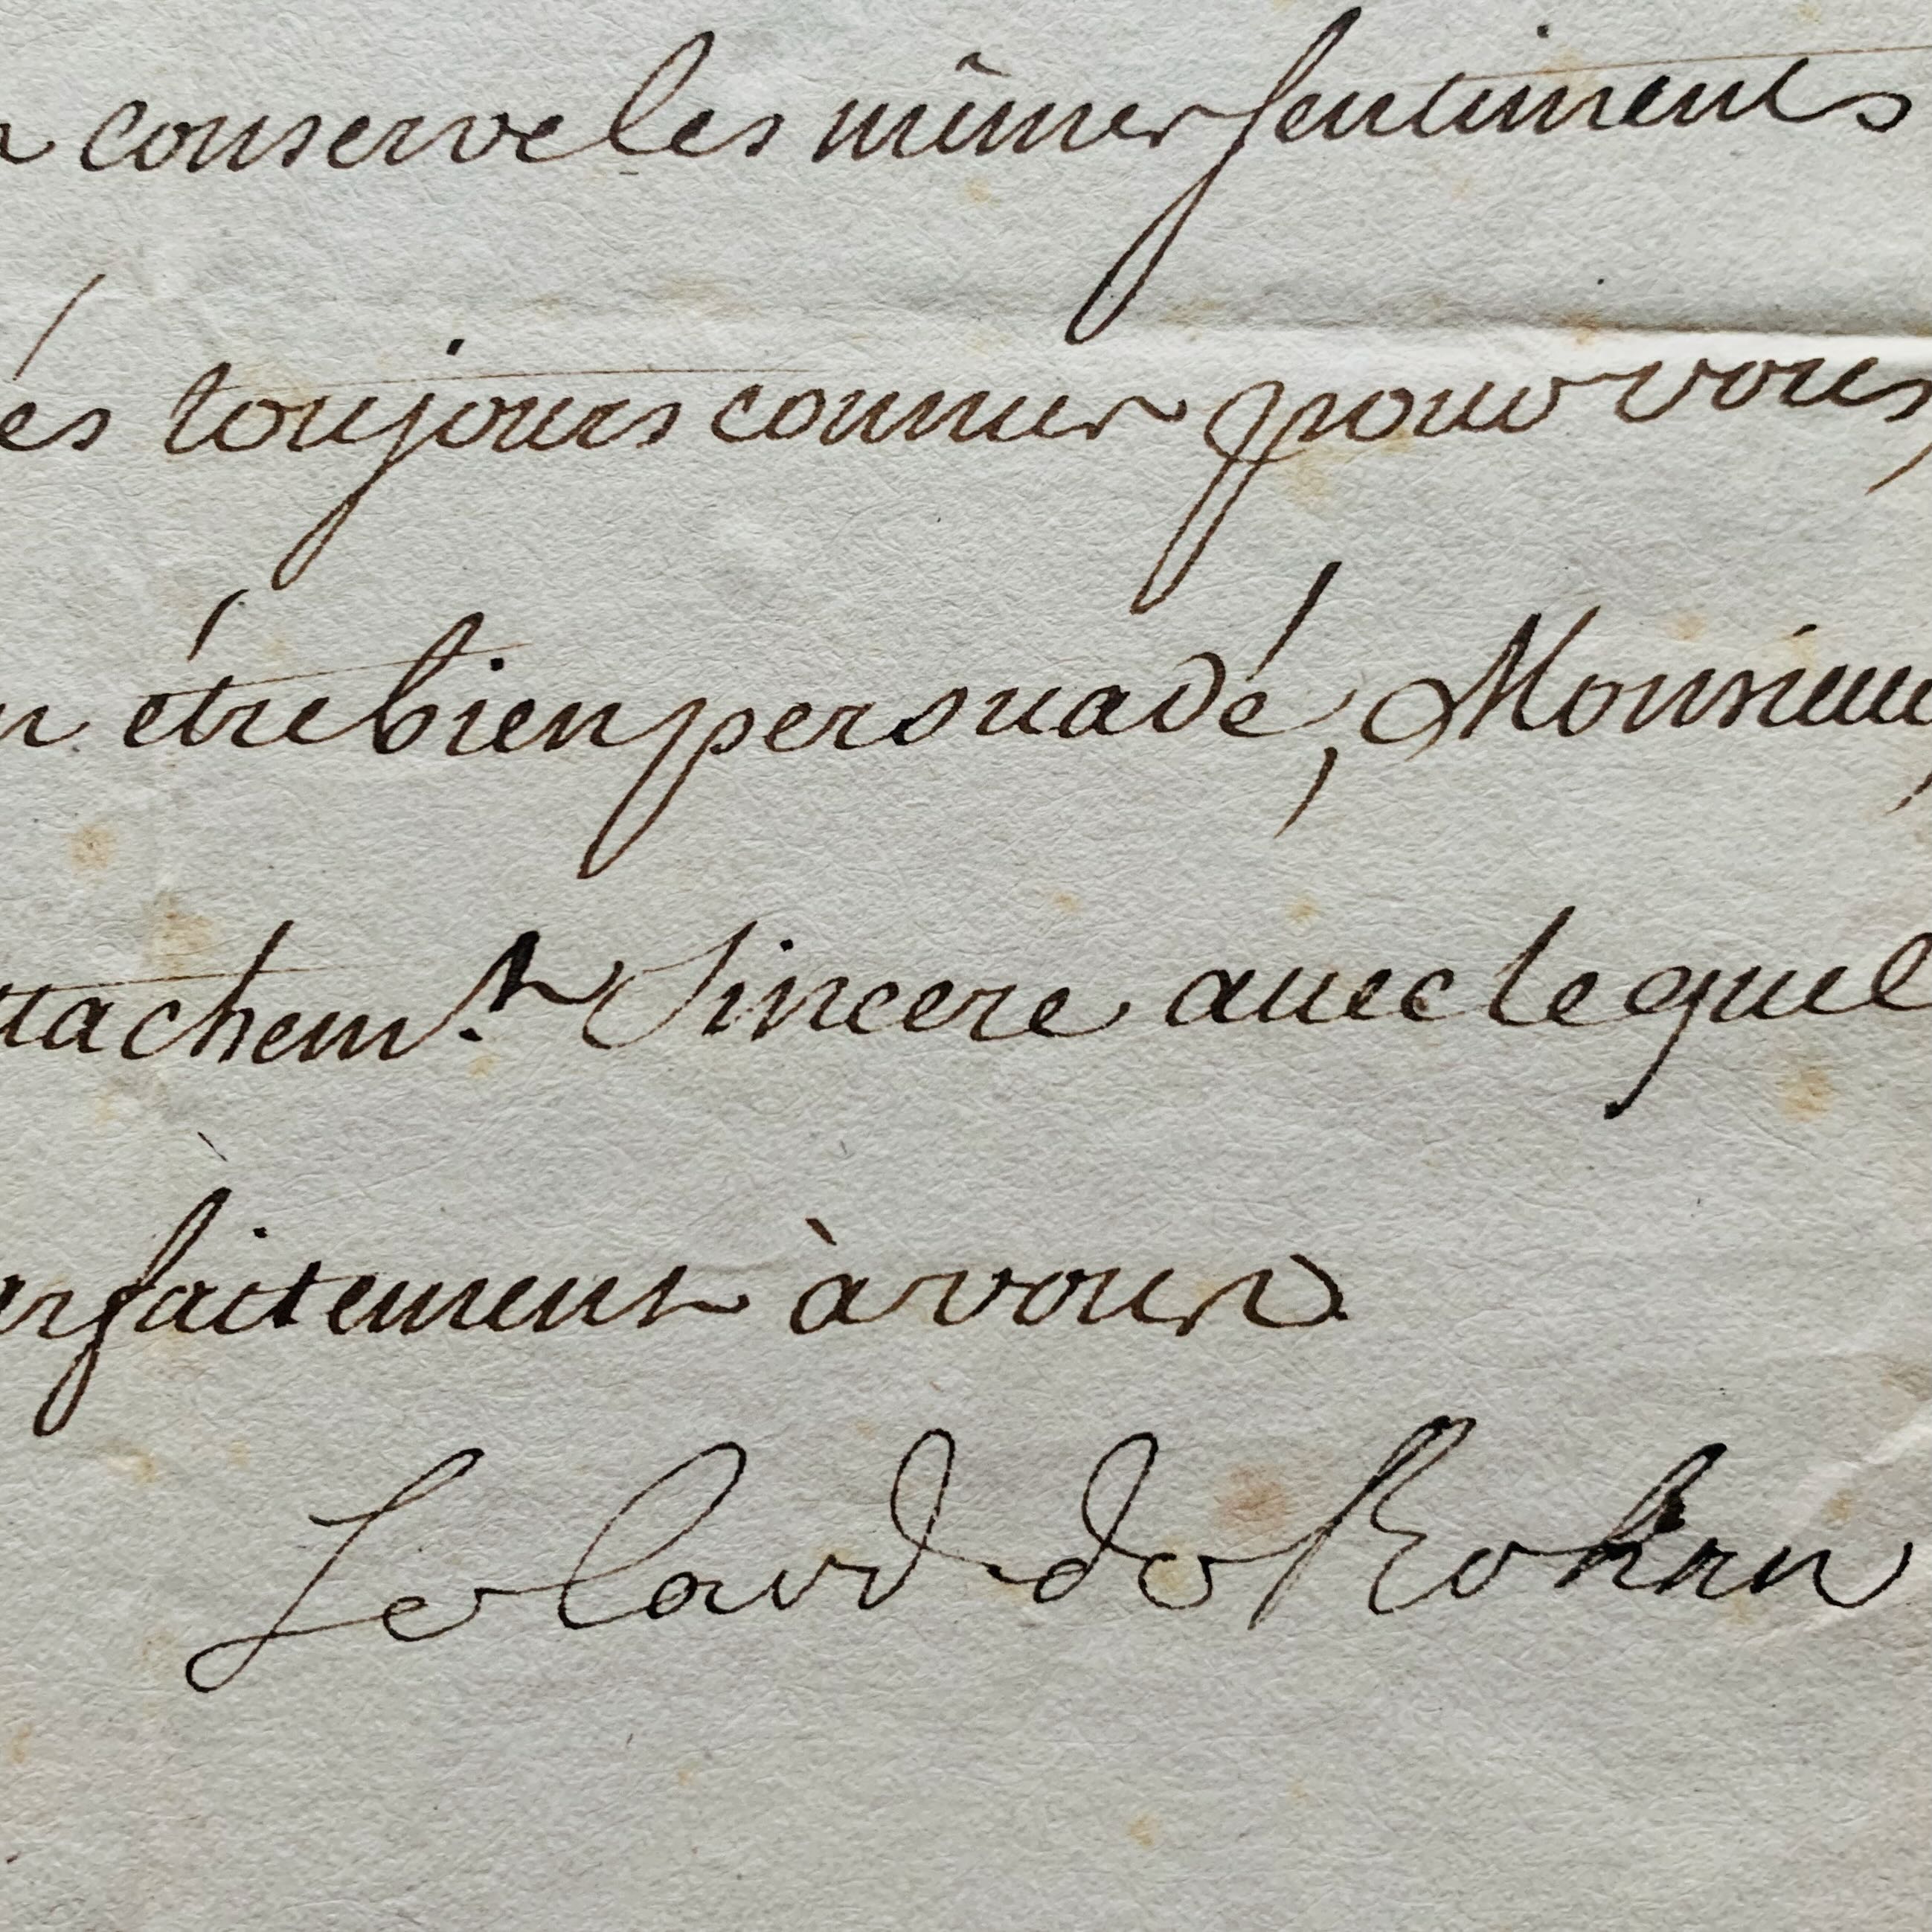 conserve les mêmes sentiments
és toujours connus pour vous,
être bien persuadé, Monsieur,
ttachem.t Sincere avec le quel
arfaitement à vous
Le Card de Rohan